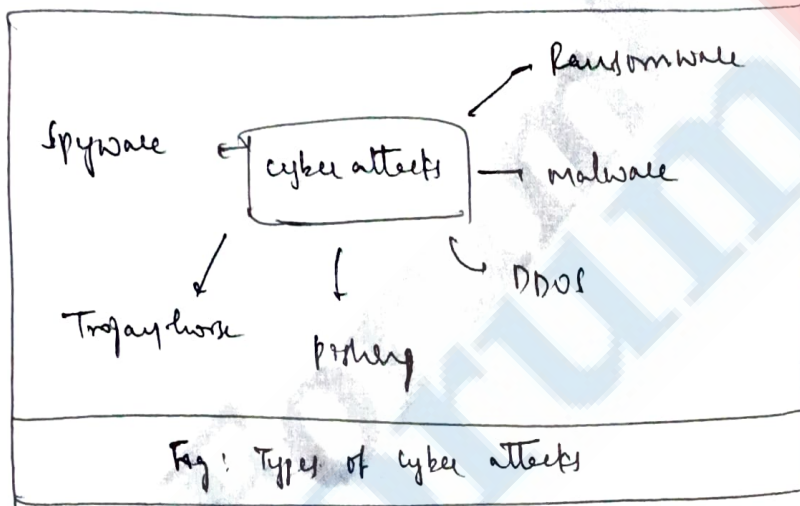 Ransomware
Spyware
cyber attacks
malware
DDOS
Trojan horse
pishing
Fig: Types of cyber attacks